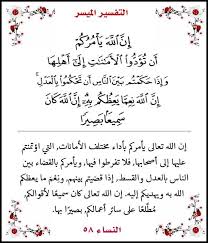 التفسير الميسر
إِنَّ ٱللَّهَ يَأۡمُرُكُمۡ
أَن تُؤَدُّواْ ٱلۡأَمَٰنَٰتِ إِلَىٰٓ أَهۡلِهَا
وَإِذَا حَكَمۡتُم بَيۡنَ ٱلنَّاسِ أَن تَحۡكُمُواْ بِٱلۡعَدۡلِۚ
إِنَّ ٱللَّهَ نِعِمَّا يَعِظُكُم بِهِۦٓۗ إِنَّ ٱللَّهَ كَانَ
سَمِيعَۢا بَصِيرٗا
إن الله تعالى يأمركم بأداء مختلف الأمانات، التي اؤتمنتم
عليها إلى أصحابها، فلا تفرطوا فيها، ويأمركم بالقضاء بين
الناس بالعدل والقسط، إذا قضيتم بينهم، ونِعْمَ ما يعظكم
الله به ويهديكم إليه. إن الله تعالى كان سميعًا لأقوالكم،
مُطَّلعًا على سائر أعمالكم، بصيرًا بها.
النساء ٥٨